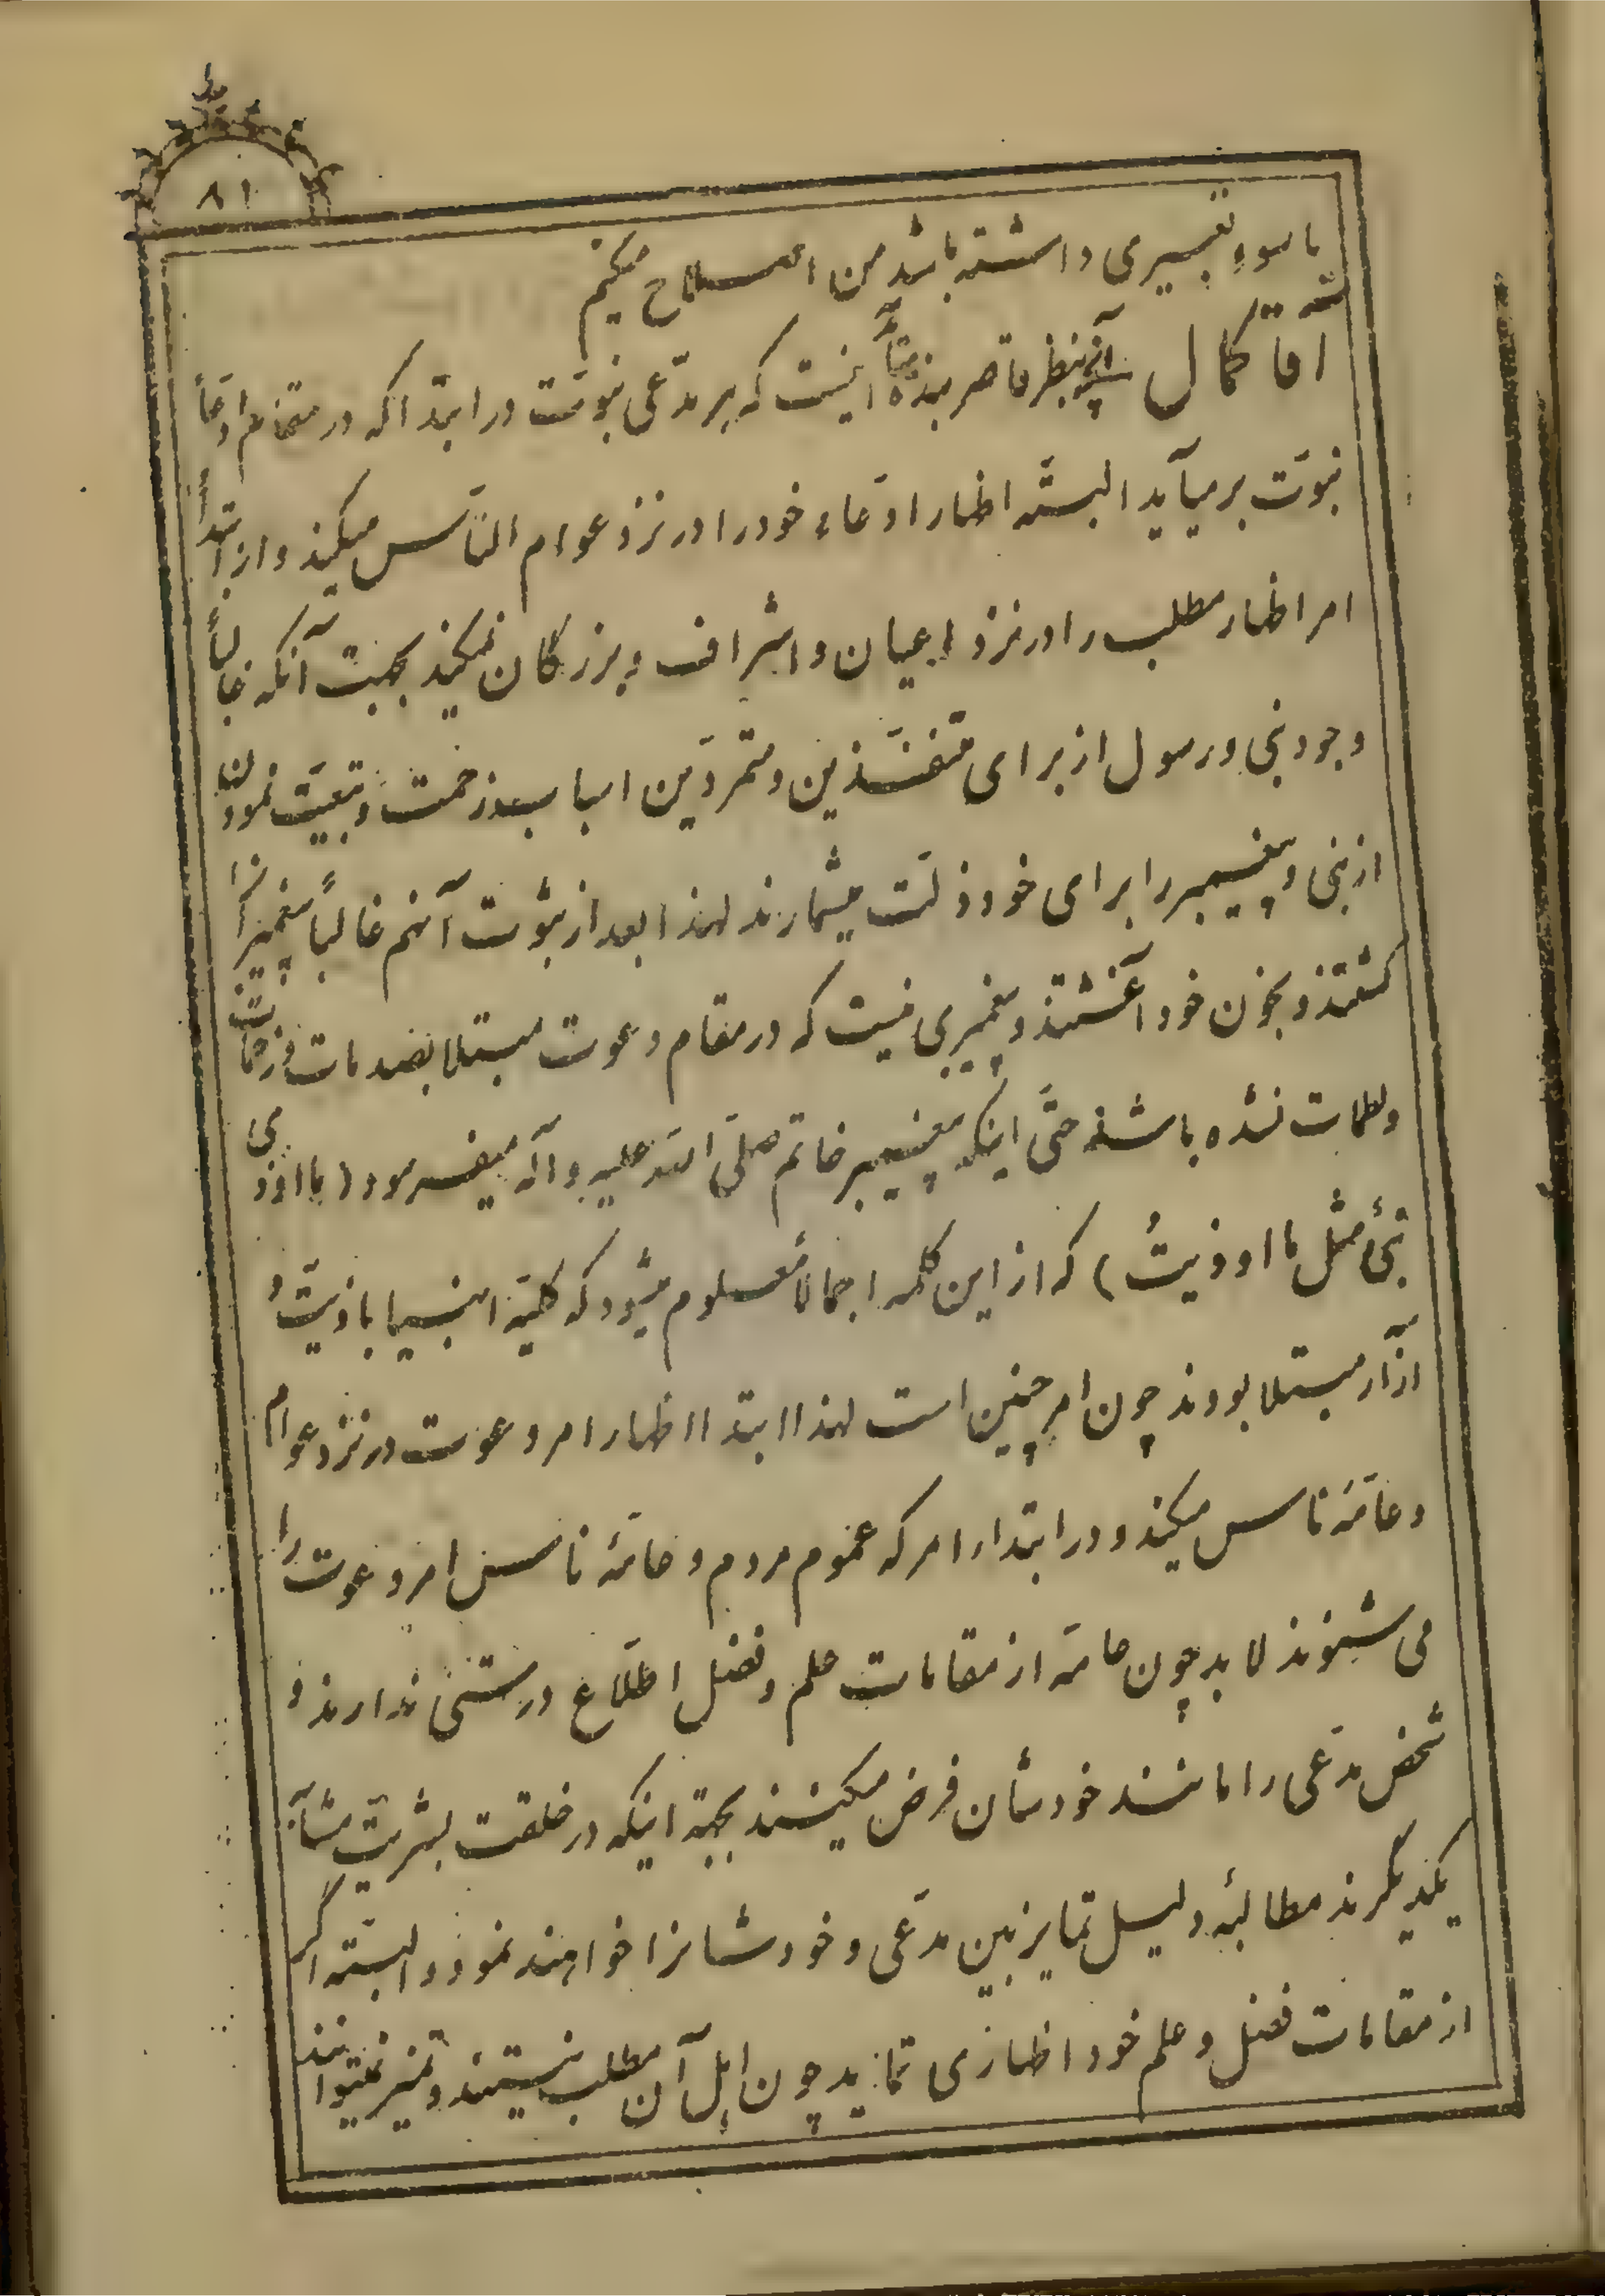 ۸۱
یا سوء تفسیری داشته باشد من اصلاح میکنم
آقا کمال آنچه بنظر قاصر بنده میآید اینست که هر مدّعی نبوّت در ابتدا که در مقام ادّعاء
نبوّت بر میآید البتّه اظهار ادّعاء خود را در نزد عوام النّاس میکند و از ابتدا
امر اظهار مطلب را در نزد اعیان و اشراف و بزرگان نمیکند بجهت آنکه غالباً
وجود نبی و رسول از برای متنفّذین و متمرّدین اسباب زحمت و تبعیّت نمودن
از نبی و پیغمبر را برای خود ذلّت میشمارند لهذا بعد از ثبوت آنهم غالباً پیغمبرانرا
کشتند و بخون خود آغشتند و پیغمبری نیست که در مقام دعوت مبتلا بصدمات و زحمات
و لطمات نشده باشد حتّی اینکه پیغمبر خاتم صلّی الله علیه و آله میفرمود (ما اوذی
نبیٌ مثل ما اوذیتُ) که از این کلمه اجمالاً معلوم میشود که کلیّه انبیا باذیّت و
آزار مبتلا بودند چون امر چنین است لهذا ابتدا اظهار امر دعوت در نزد عوام
و عامّه ناس میکند و در ابتداء امر که عموم مردم و عامّهٔ ناس امر دعوت را
می شنوند لابد چون عامّه از مقامات علم و فضل اطّلاع درستی ندارند و
شخص مدّعی را مانند خودشان فرض میکنند بجهة اینکه در خلقت بشریّت مشابه
یکدیگرند مطالبهٔ دلیل تمایز بین مدّعی و خودشانرا خواهند نمود و البتّه اگر
از مقامات فضل و علم خود اظهاری نماید چون اهل آن مطلب نیستند و تمیز نمیتوانند